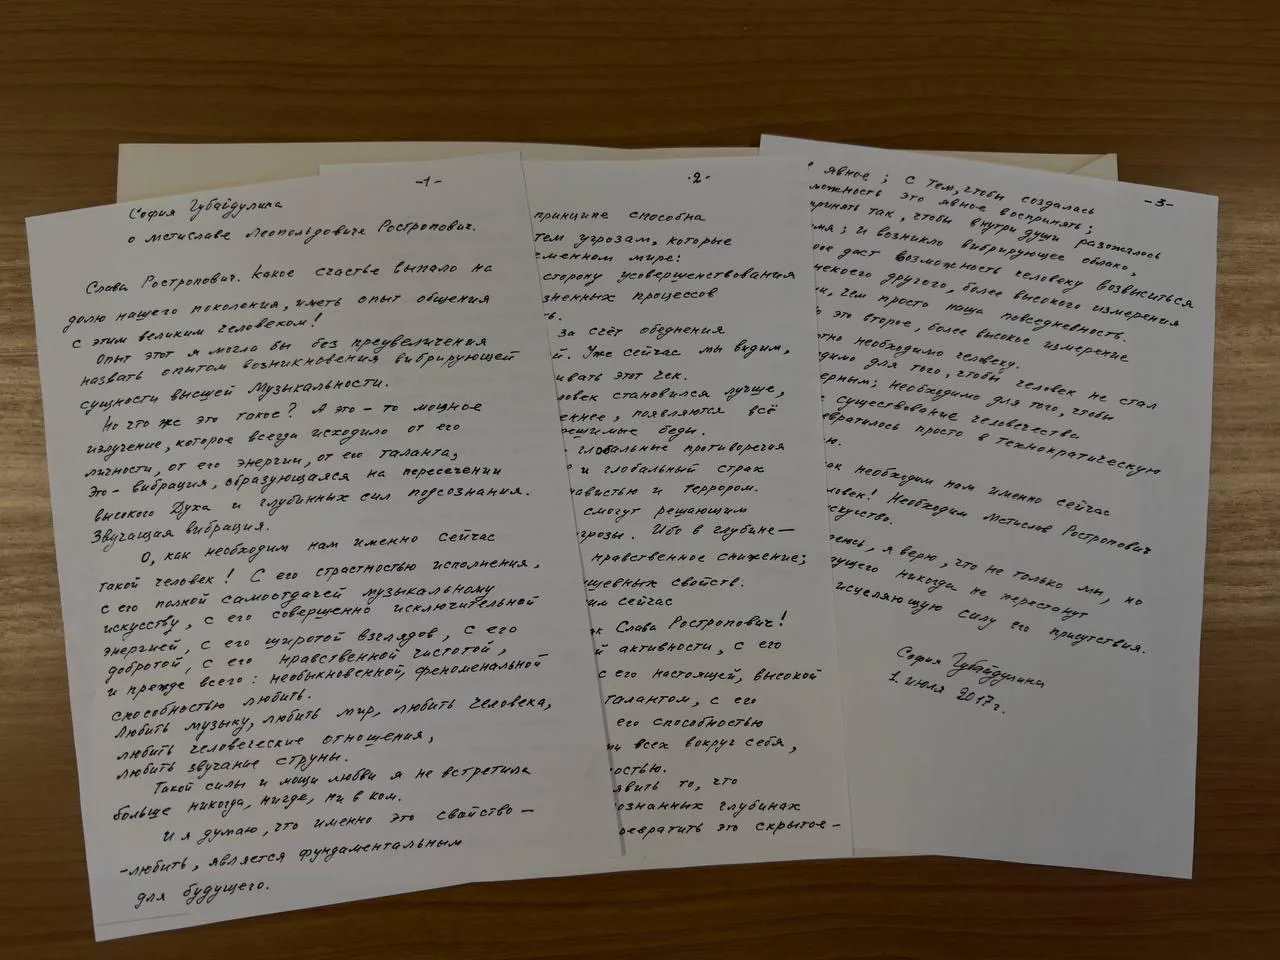 -1-
София Губайдулина
о Мстиславе Леопольдовиче Ростропович.
Слава Ростропович. Какое счастье выпало на
долю нашего поколения, иметь опыт общения
с этим великим человеком!
Опыт этот я могла бы без преувеличения
назвать опытом возникновения вибрирующей
сущности высшей Музыкальности.
Но что же это такое? А это – то мощное
излучение, которое всегда исходило от его
личности, от его энергии, от его таланта,
Это – вибрация, образующаяся на пересечении
высокого Духа и глубинных сил подсознания.
Звучащая вибрация.
О, как необходим нам именно сейчас
такой человек! С его страстностью исполнения,
с его полной самоотдачей музыкальному
искусству, с его совершенно исключительной
энергией, с его широтой взглядов, с его
добротой, с его нравственной чистотой,
и прежде всего: необыкновенной, феноменальной
способностью любить.
Любить музыку, любить мир, любить человека,
любить человеческие отношения,
любить звучание струны.
Такой силы и мощи любви я не встретила
больше никогда, нигде, ни в ком.
И я думаю, что именно это свойство –
-любить, является фундаментальным
для будущего.
·2·
принципе способна
тем угрозам, которые
еменном мире:
сторону усовершенствования
зненных процессов
ь.
за счёт обеднения
й. Уже сейчас мы видим,
ивать этот чек.
ловек становился лучше,
еннее, появляются всё
решимые беды.
глобальные противоречия
и глобальный страх
навистью и террором.
смогут решающим
грозы. Ибо в глубине –
нравственное снижение;
ушевных свойств.
им сейчас
к Слава Ростропович!
й активности, с его
с его настоящей, высокой
талантом, с его
его способностью
ти всех вокруг себя,
остью.
явить то, что
ознанных глубинах
ревратить это скрытое –
-3-
явное; с тем, чтобы создалась
можность это явное воспринять;
принять так, чтобы внутри души разожглось
мя; и возникло вибрирующее облако,
рое даст возможность человеку возвыситься
некоего другого, более высокого измерения
и, чем просто наша повседневность.
о это второе, более высокое измерение
тно необходимо человеку.
димо для того, чтобы человек не стал
ерным; необходимо для того, чтобы
существование человечества
евратилось просто в технократическую
ю.
ак необходим нам именно сейчас
ловек! Необходим Мстислав Ростропович
скусство.
еюсь, я верю, что не только мы, но
дущего никогда не перестанут
исцеляющую силу его присутствия.
София Губайдулина
1. июля 2017 г.